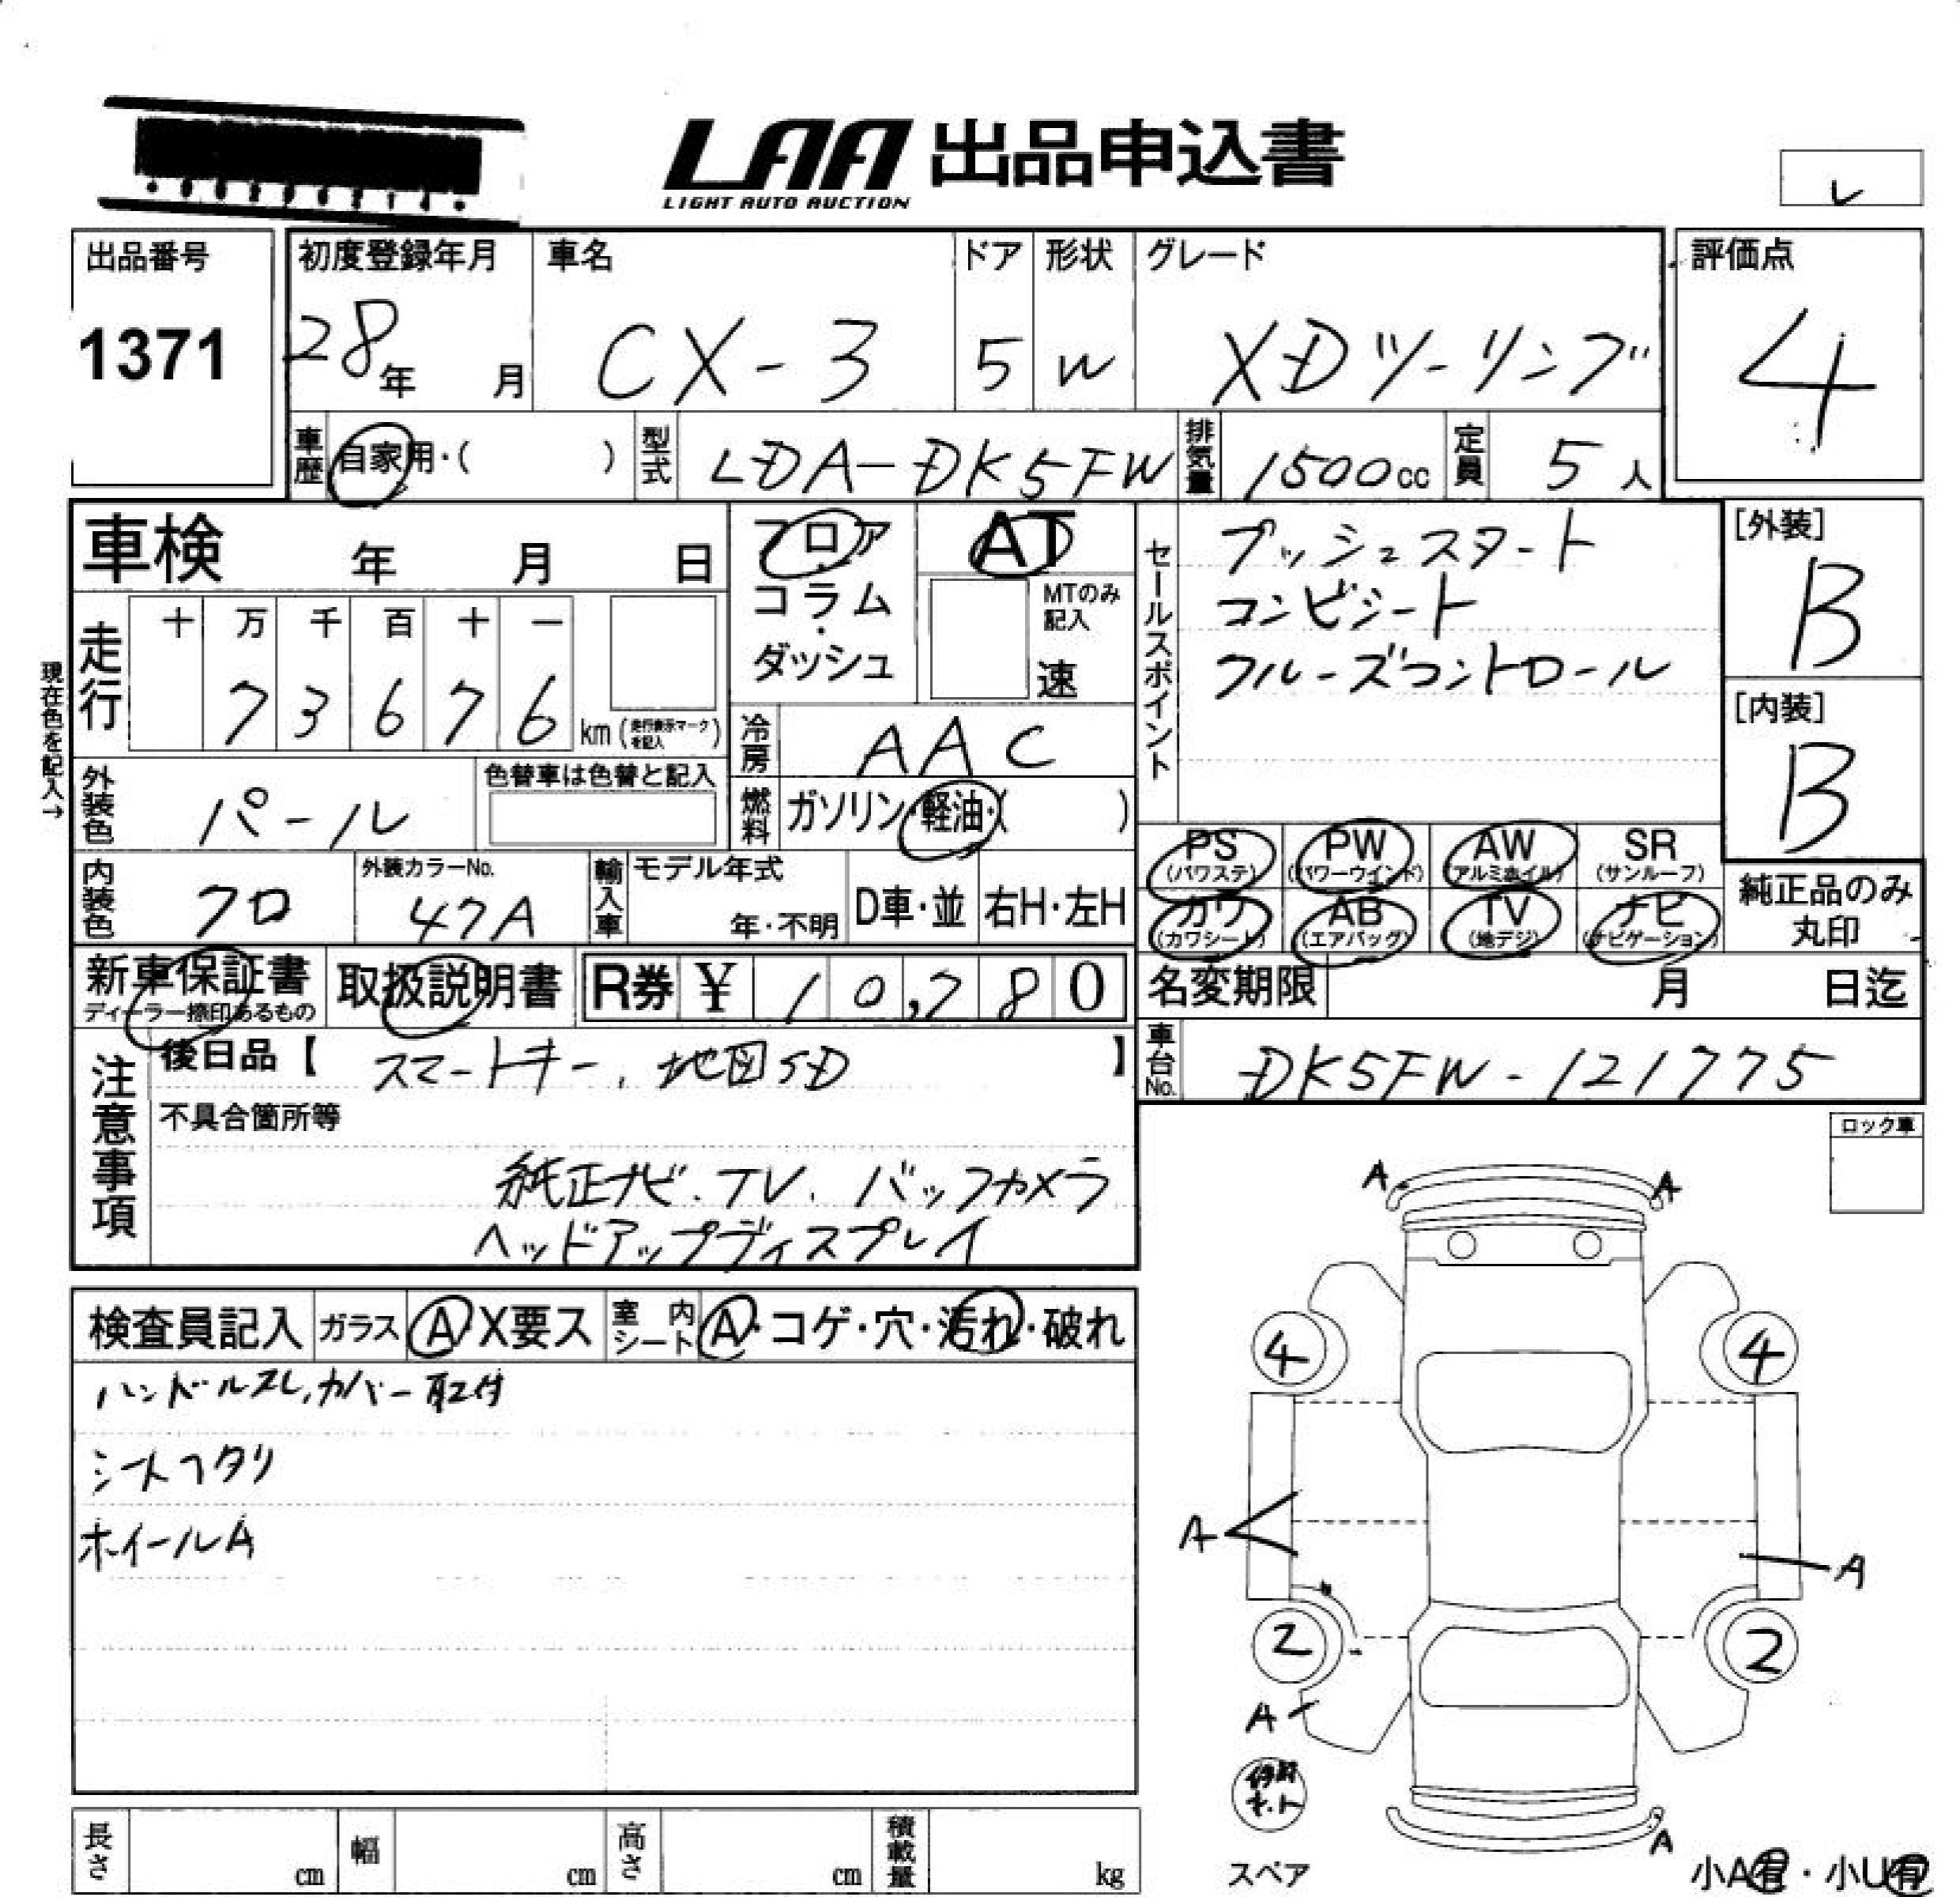 LAA 出品申込書
LIGHT AUTO AUCTION
レ
出品番号
1371
初度登録年月
28年 月
車名
CX-3
ドア
5
形状
W
グレード
XDツーリング
評価点
4
車歴 自家用・( )
型式 LDA-DK5FW
排気量 1500cc
定員 5人
車検 年 月 日
フロア・コラム・ダッシュ
AT
MTのみ記入
速
セールスポイント
プッシュスタート
コンビシート
クルーズコントロール
[外装]
B
[内装]
B
現在色を記入→
走行
十 万 千 百 十 一
7 3 6 7 6 km (走行表示マークを記入)
冷房 AAC
外装色 パール
色替車は色替と記入
燃料 ガソリン・軽油・( )
内装色 クロ
外装カラーNo.
47A
輸入車
モデル年式
年・不明
D車・並
右H・左H
PS (パワステ)
PW (パワーウインド)
AW (アルミホイル)
SR (サンルーフ)
カワ (カワシート)
AB (エアバッグ)
TV (地デジ)
ナビ (ナビゲーション)
純正品のみ
丸印
新車保証書
ディーラー捺印あるもの
取扱説明書
R券 ¥ 10,280
名変期限 月 日迄
車台No. DK5FW-121775
注意事項
後日品【 スマートキー, 地図SD 】
不具合箇所等
純正ナビ.TV.バックカメラ
ヘッドアップディスプレイ
ロック車
検査員記入
ガラス A・X要ス
室内シート A・コゲ・穴・汚れ・破れ
ハンドルスレ,カバー取付
シートヘタリ
ホイールA
A A
4 4
A A
2 2
A
スペア
A
小A有・小U有
長さ cm
幅 cm
高さ cm
積載量 kg